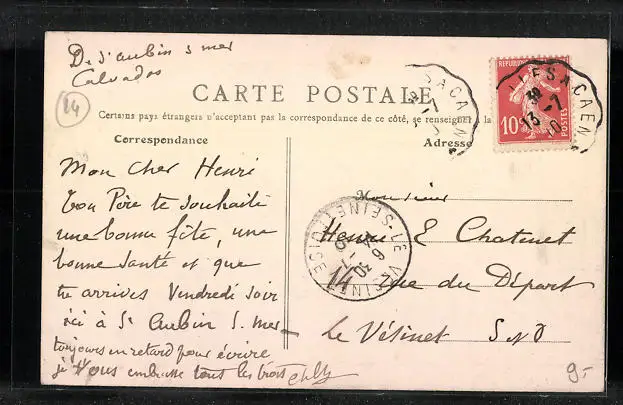 De St aubin s mer
Calvados
14
CARTE POSTALE
Certains pays étrangers n'acceptant pas la correspondance de ce côté, se renseigner à la
Correspondance
Adresse
Mon cher Henri
Ton Père te souhaite
une bonne fête, une
bonne santé et que
tu arrives Vendredi soir
ici à St Aubin S. mer
toujours en retard pour écrire
je vous embrasse tous les trois
Monsieur
Henri E Chatenet
14 rue du Départ
Le Vésinet S & O
SACAEN
13-7
10
10c
POSTES
LE VESINET
SEINE ET OISE
9-